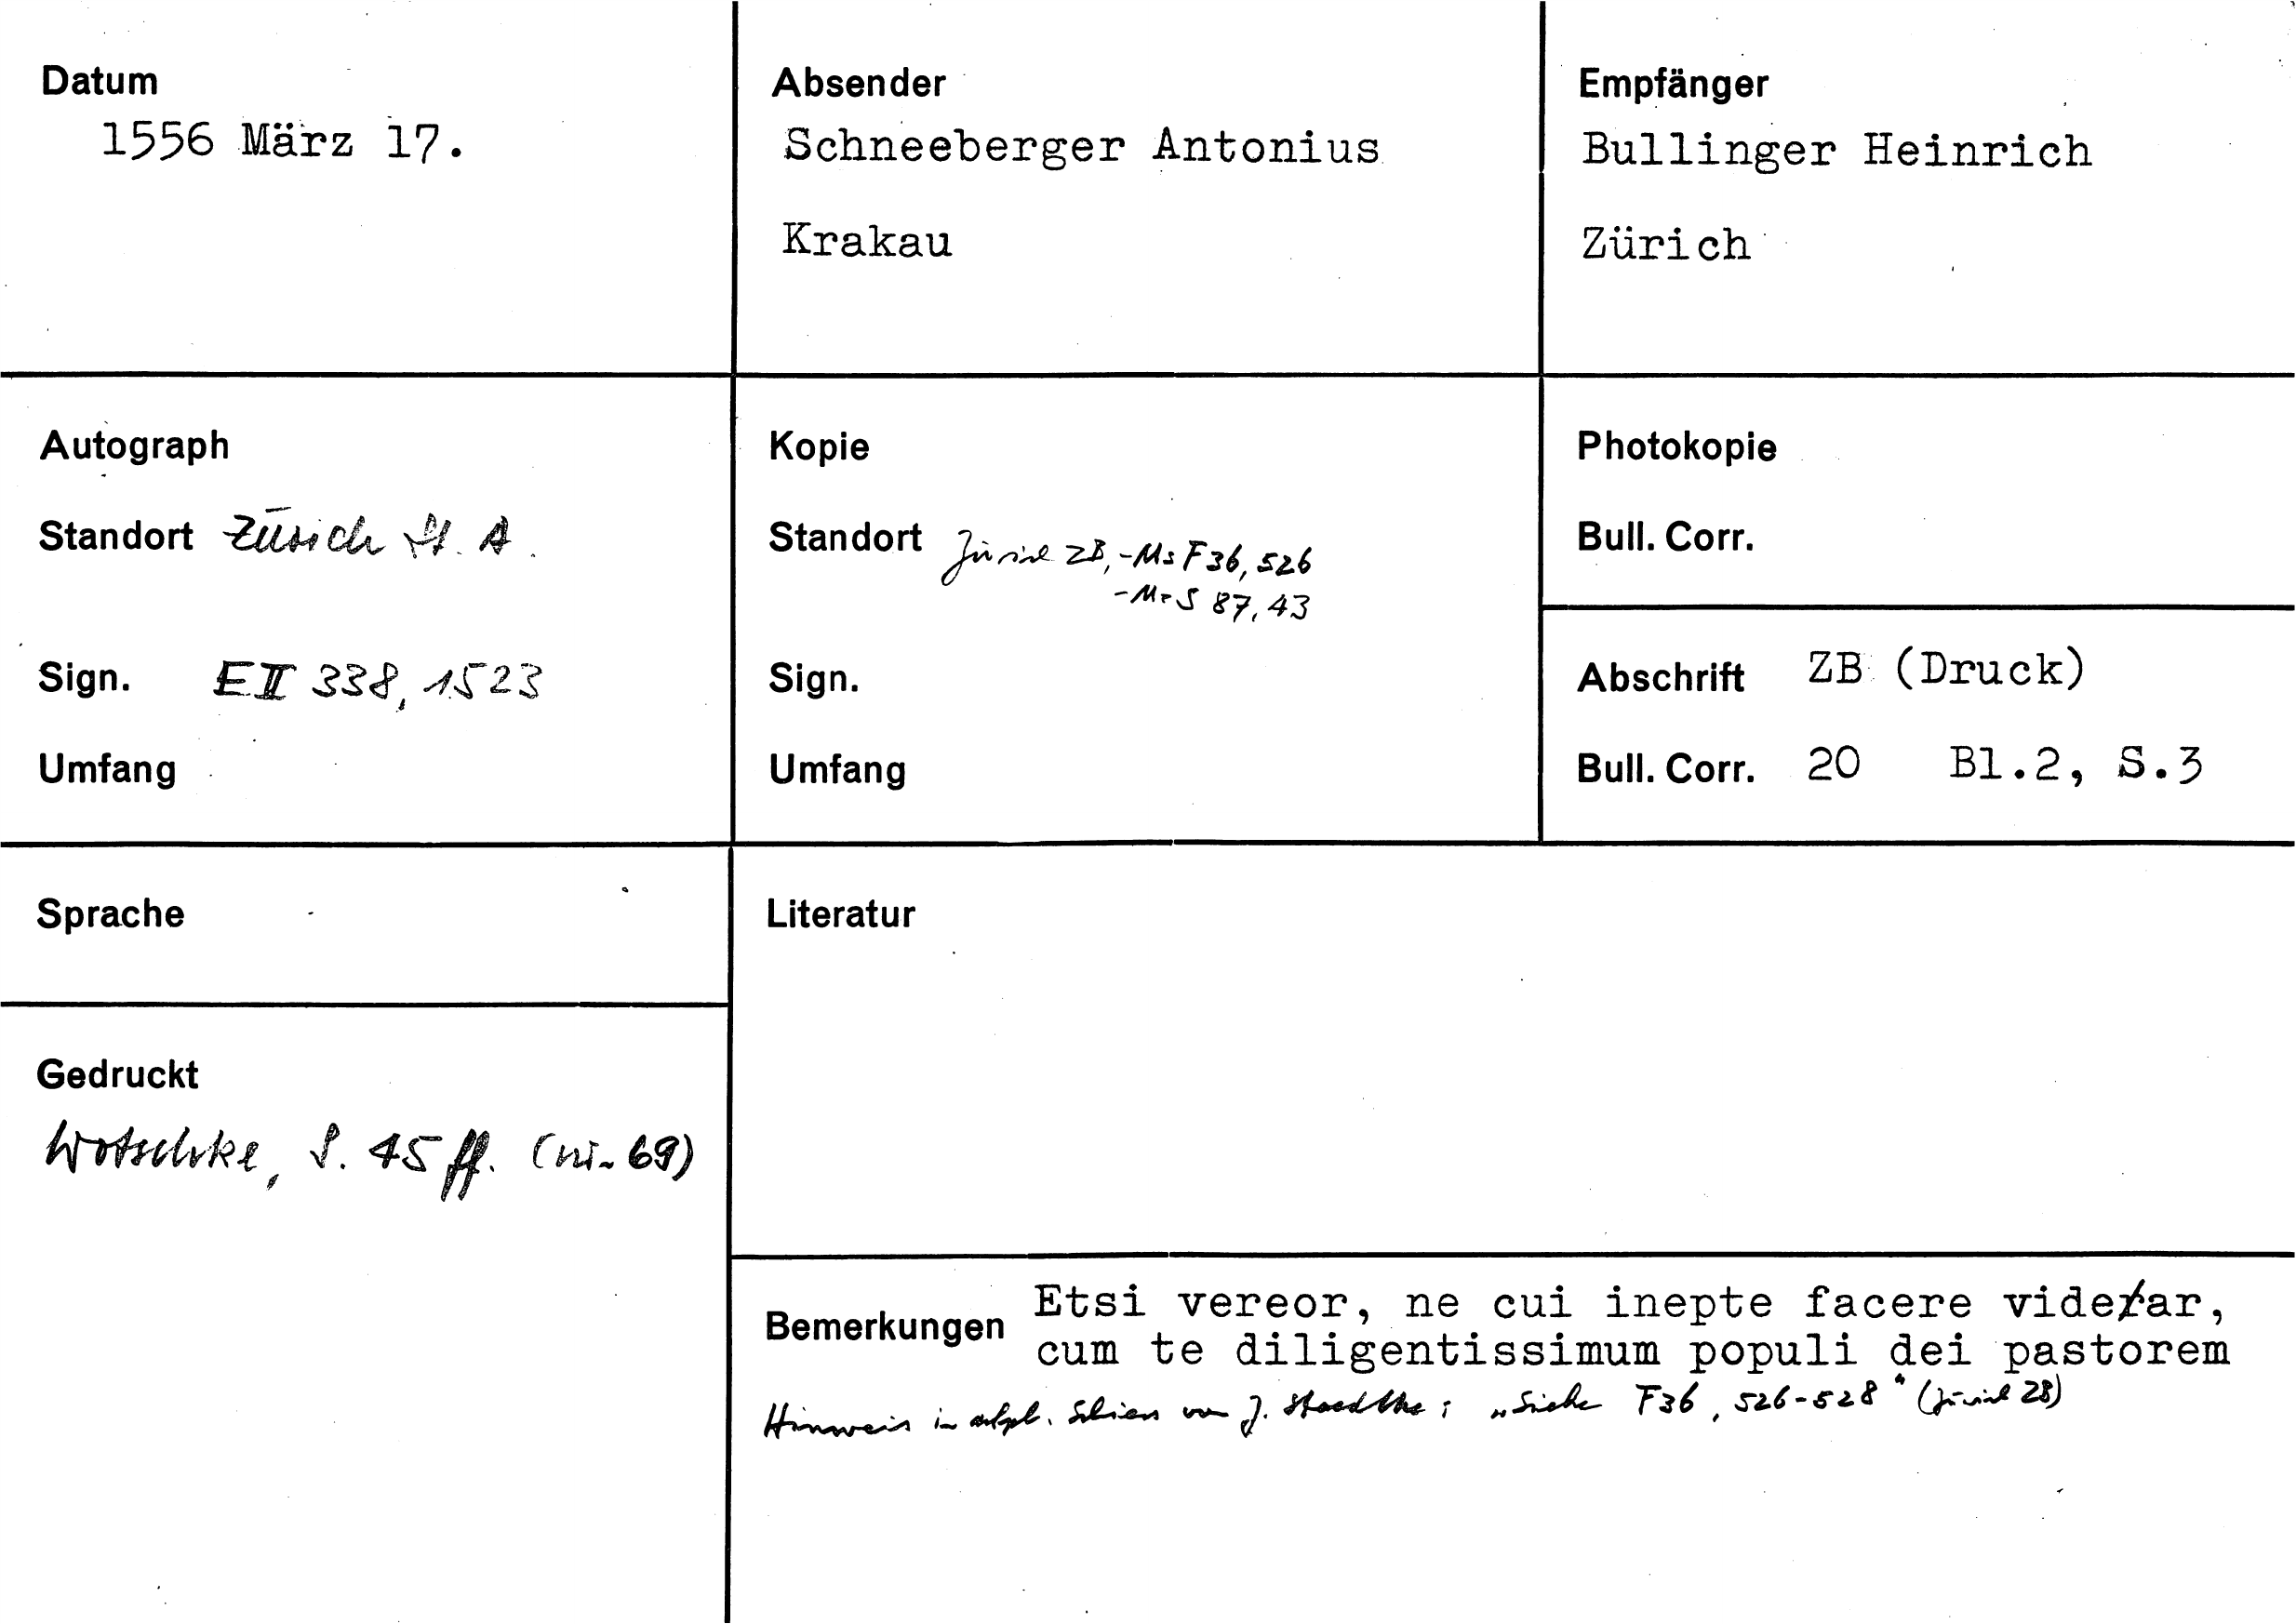 Datum
1556 März 17.
Absender
Schneeberger Antonius
Krakau
Empfänger
Bullinger Heinrich
Zürich
Autograph
Standort Zürich St. A.
Sign. E II 338, 1523
Umfang
Kopie
Standort Zürich ZB, - Ms F 36, 526
- Ms S 87, 43
Sign.
Umfang
Photokopie
Bull. Corr.
Abschrift ZB (Druck)
Bull. Corr. 20 Bl.2, S.3
Sprache
Gedruckt
Wotschke, S. 45 ff. (nr. 69)
Literatur
Bemerkungen Etsi vereor, ne cui inepte facere viderar,
cum te diligentissimum populi dei pastorem
Hinweis in von J. Staedtke: „Siehe F 36, 526-528" (Zürich ZB)